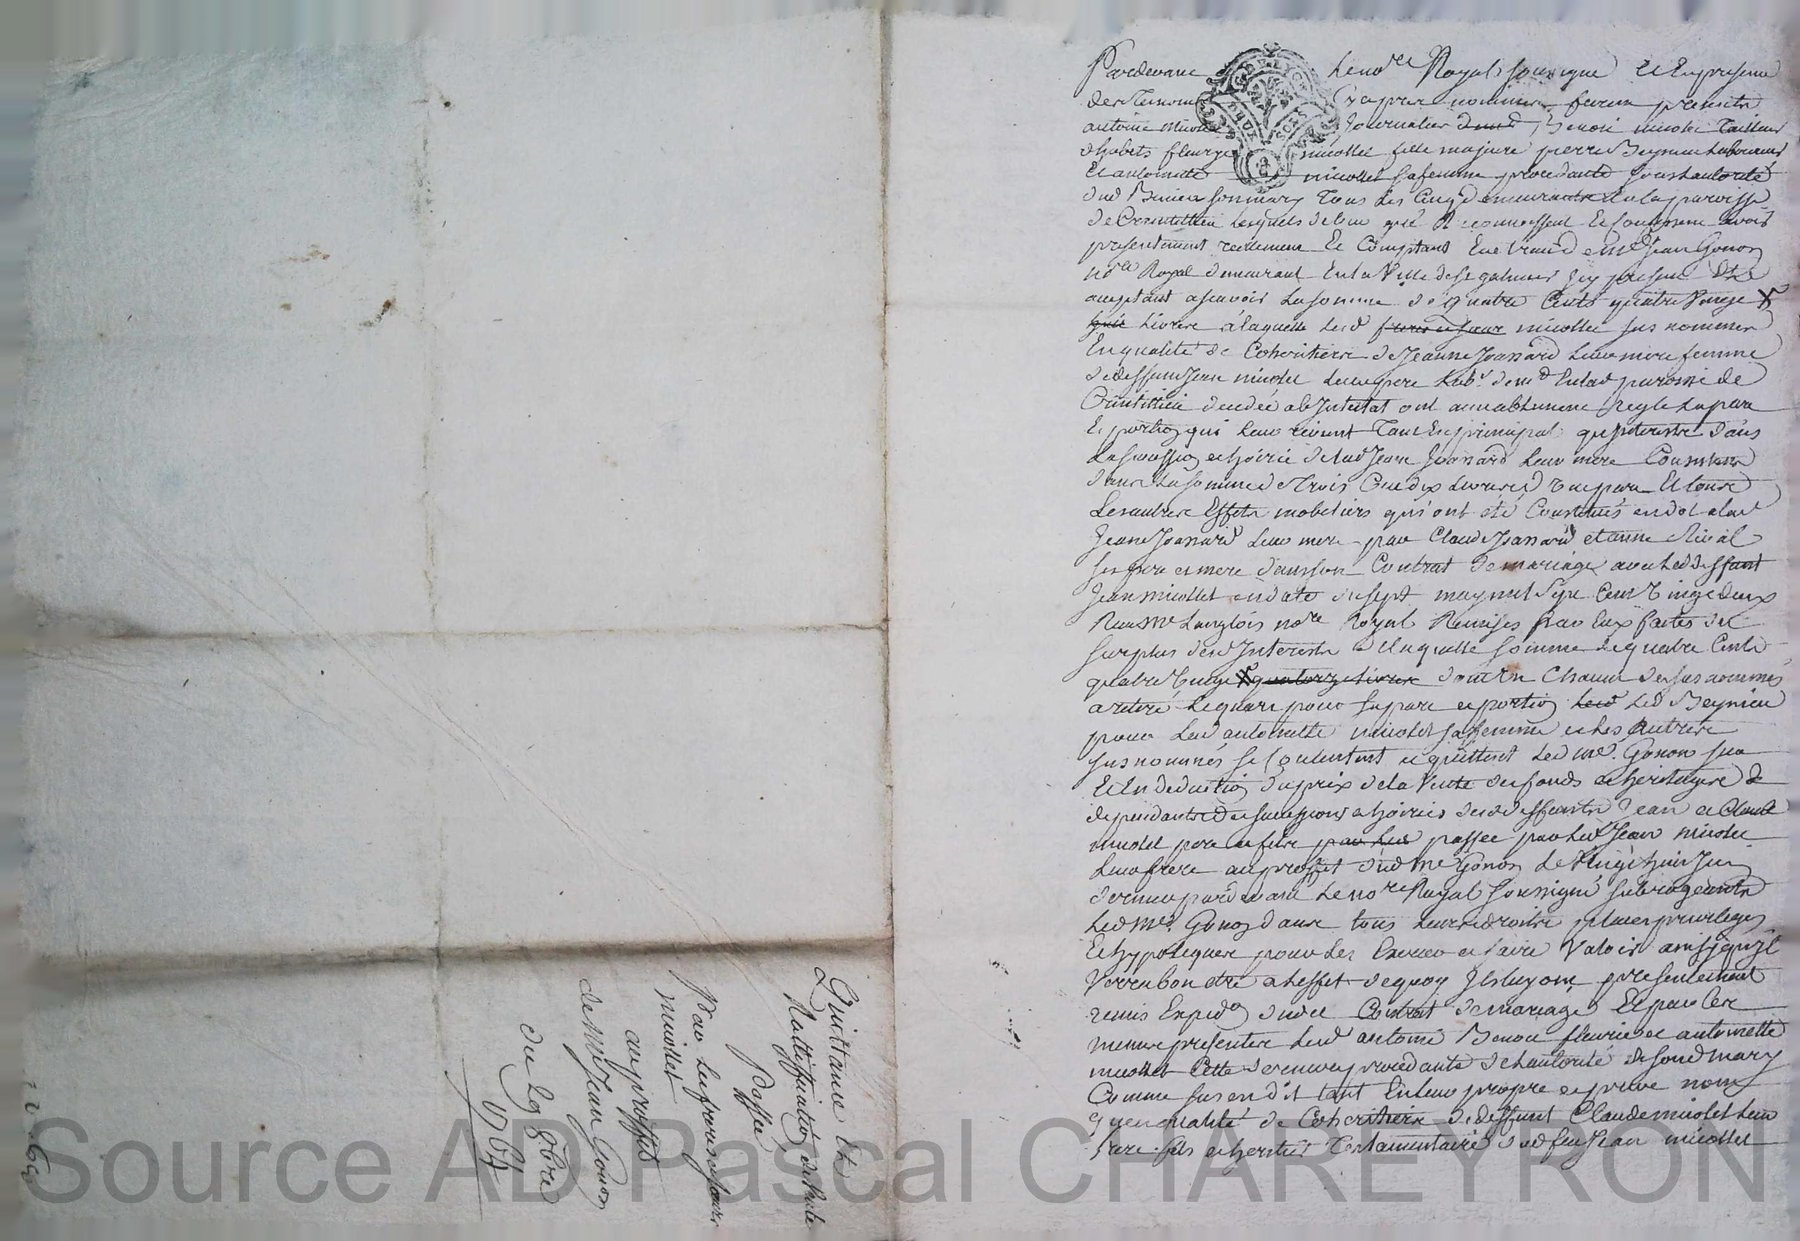 Pardevant le no.re Royal soussigné et En presence
des Temoins Cy apres nommés furent presents
antoine micollet Journalier Benoit micollet Tailleur
d'habits fleurye micollet fille majeure pierre Beynieu Laboureur
Et antoinette micollet sa femme procedante sous l'autorité
dud Beinieu son mary Tous Les Cinq demeurants En la paroisse
de Crintillieu Lesquels de leur gré Reconnoissent Et Confessent avoir
presentement reellement Et Comptant Eue de m.e Jean Gonon
no.re Royal demeurant En la Ville de St galmier Icy present Et
acceptant ascavoir La somme de quatre Cents quatre Vingt
Livres a laquelle Lesd freres et soeur micollet sus nommés
En qualité de Coheritiers de Jeanne Joanard Leur mere femme
de deffunt Jean micolet Leur pere Lab.r dem.t En lad paroisse de
Crintillieu decedée ab Intestat ont amiablement reglé La part
Et portion qui Leur revient Tant En principal qu'Interets dans
La succession et hoirie de lad Jeane Joanard Leur mere Consistante
dans La somme de Trois Cent dix Livres d'une part Et tous
Les autres Effets mobiliers qui ont été Constitués en dot a lad
Jeane Joanard Leur mere par Claude Joanard et anne Rival
ses pere et mere dans son Contrat de mariage avec Led deffunt
Jean micollet en date du sept may mil Sept Cent Vingt deux
Reçu M.e Langlois no.re Royal Remises par Eux faites du
surplus desd Interets de laquelle somme de quatre Cents
quatre Vingt quatorze livres dont Un Chacun des sus nommés
a retiré Le quart pour sa part et portion Led Beynieu
pour Lad antoinette micolet sa femme et Les autres
sus nommés se Contentent et quittent Led m.e Gonon sur
Et En deduction du prix de la Vente des fonds et heritages
dependants des successions et hoiries desd deffunts Jean et Claude
micolet pere et fils passée par Led Jean micolet
Leur frere au proffit dud M.e Gonon Le Vingt huit Juin
dernier pardevant Le no.re Royal soussigné subrogeants
Led M.e Gonon dans tous Leurs droits places privileges
Et hypoteques pour Les Exercer et faire Valoir ainsi qu'il
Verra bon etre a L'effet de quoy Ils luy ont presentement
remis Exped.on dudit Contrat de mariage Et par Ces
memes presentes Lesd antoine Benoit fleurie et antoinette
micollet Cette derniere procedante de L'autorité de sond mary
Comme sus en dit tant En leur propre et privé nom
qu'en qualité de Coheritiers de deffunt Claude micolet Leur
frere fils et heritier Testamentaire dud feu Jean micollet
Quittance Et
Rattiffication de Vente
Passée
Par Les freres et soeur
micollet
au proffit
de M.e Jean Gonon
du 29 8bre
1764
Source AD Pascal CHAREYRON